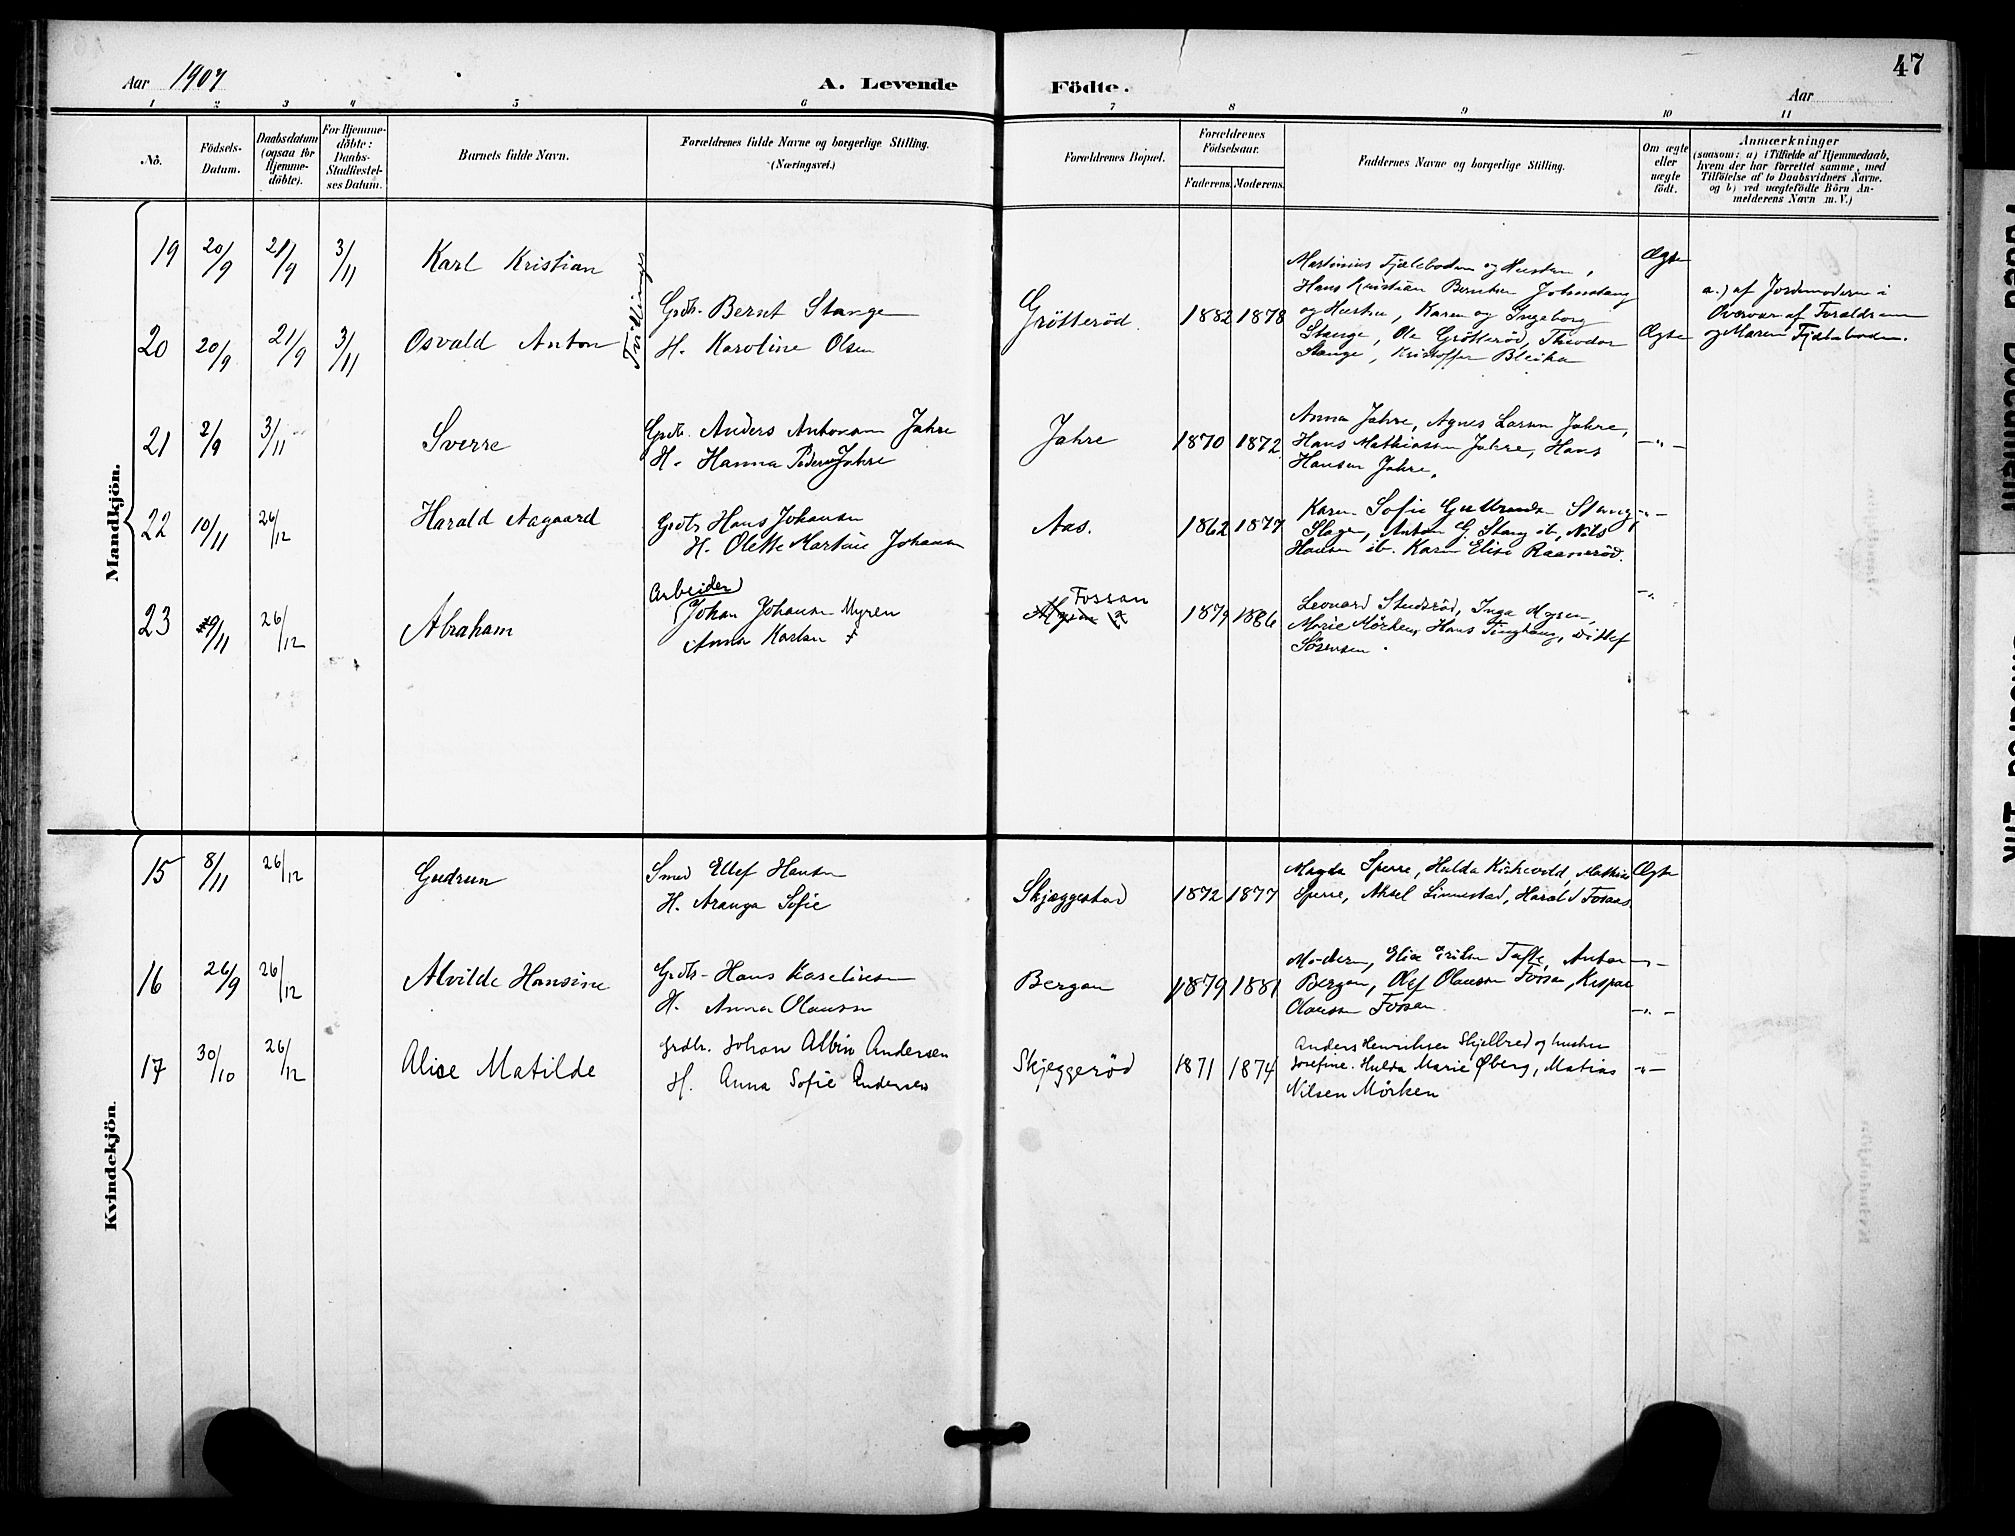 47
Aar 1907
A. Levende
Födte.
Aar
1 2 3 4 5 6 7 8 9 10 11
No.
Födsels-Datum.
Daabsdatum (ogsaa for Hjemme-döbte).
For Hjemme-döbte: Daabs-Stadfæstel-ses Datum.
Barnets fulde Navn.
Forældrenes fulde Navne og borgerlige Stilling. (Næringsvei.)
Forældrenes Bopæl.
Forældrenes Födselsaar.
Faderens. Moderens.
Faddernes Navne og borgerlige Stilling.
Om ægte eller uægte födt.
Anmærkninger
(saasom: a) i Tilfælde af Hjemmedaab,
hvem der har forrettet samme, med
Tilföielse af to Daabsvidners Navne.
og b) ved uægtefödte Börn An-
melderens Navn m. V.)
Mandkjön.
19 20/9 21/9 3/11 Karl Kristian
Tvillinger
20 20/9 21/9 3/11 Osvald Anton
Grdb. Bernt Stange
H. Karoline Olsen
Grötteröd. 1882 1878
Martinius Fjæleboden og Hustru,
Hans Kristian Berntsen Johnstang
og Hustru, Karen og Ingeborg
Stange, Ole Grötteröd, Theodor
Stange, Kristoffer Bleika
Ægte
Ægte
a.) af Jordemoderen i
Overvær af Forældrene
og Maren Fjæleboden.
21 2/9 3/11 Sverre
Grdb. Anders Antonsen Jahre
H. Hanna Pedersen Jahre
Jahre 1870 1872
Anna Jahre, Agnes Larsen Jahre,
Hans Mathiassen Jahre, Hans
Hansen Jahre.
—"—
22 10/11 26/12 Harald Aagaard
Grdb. Hans Johansen
H. Olette Martine Johansen
Aas. 1862 1877
Karen Sofie Gulbrandsen Stang
Slagen, Anton G. Stang ib, Nils
Hansen ib. Karen Elise Raaneröd.
—"—
23 9/11 26/12 Abraham
Arbeider
Johan Johansen Myren
Anna Karlsen
Fossan
1879 1886
Leonard Studeröd, Inga Mysen,
Marie Mörken, Hans Tinghaug, Ditlef
Sörensen.
—"—
Kvindekjön.
15 8/11 26/12 Gudrun
Smed Ellef Hansen
H. Aranga Sofie
Skjæggestad 1872 1877
Magda Sperre, Hulda Kirkevold, Mathias
Sperre, Aksel Linnestad, Harald Fosaas
Ægte
16 26/9 26/12 Alvilde Hansine
Grdb. Hans Kaseliusen
H. Anna Olausen
Bergan 1879 1881
Moderen, Elise Eriksen Tufte, Anton
Bergan, Olef Olausen Fossan, Kaspar
Olaussen Fossan.
—"—
17 30/10 26/12 Alice Matilde
Grdbr. Johan Albin Andersen
H. Anna Sofie Andersen
Skjeggeröd 1871 1874
Anders Henriksen Skjelbred og hustru
Josefine. Hulda Marie Øberg, Matias
Nilsen Mörken
—"—